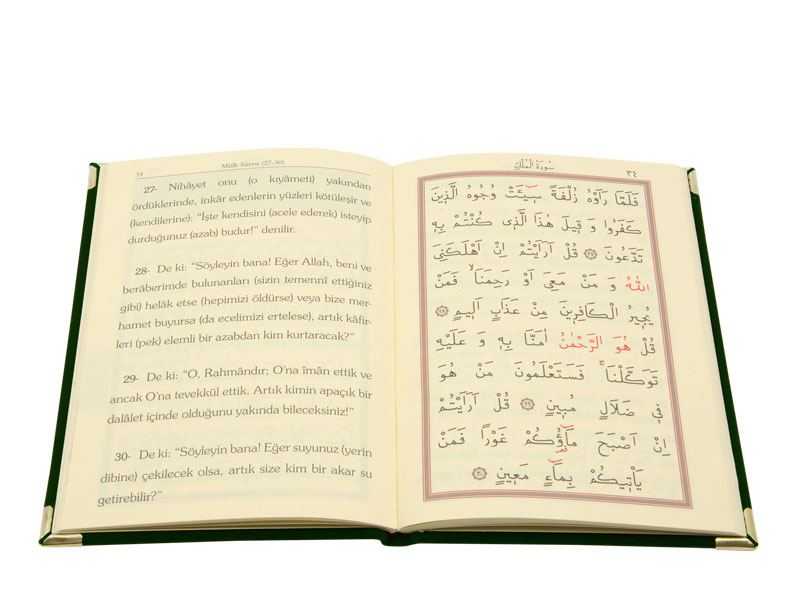 34 Mülk Sûresi (27-30)
27- Nihâyet onu (o kıyâmeti) yakından
gördüklerinde, inkâr edenlerin yüzleri kötüleşir ve
(kendilerine): “İşte kendisini (acele ederek) isteyip
durduğunuz (azab) budur!” denilir.
28- De ki: “Söyleyin bana! Eğer Allah, beni ve
berâberimde bulunanları (sizin temennî ettiğiniz
gibi) helâk etse (hepimizi öldürse) veya bize mer-
hamet buyursa (da ecelimizi ertelese), artık kâfir-
leri (pek) elemli bir azabdan kim kurtaracak?”
29- De ki: “O, Rahmândır; O’na îmân ettik ve
ancak O’na tevekkül ettik. Artık kimin apaçık bir
dalâlet içinde olduğunu yakında bileceksiniz!”
30- De ki: “Söyleyin bana! Eğer suyunuz (yerin
dibine) çekilecek olsa, artık size kim bir akar su
getirebilir?”
سُورَةُ الْمُلْكِ ٣٤
فَلَمَّا رَاَوْهُ زُلْفَةً سٖٓيـَٔتْ وُجُوهُ الَّذٖينَ
كَفَرُوا وَ قٖيلَ هٰذَا الَّذٖى كُنْتُمْ بِهٖ
تَدَّعُونَ ﴿٢٧﴾ قُلْ اَرَاَيْتُمْ اِنْ اَهْلَكَنِىَ
اللّٰهُ وَ مَنْ مَعِىَ اَوْ رَحِمَنَاۙ فَمَنْ
يُجٖيرُ الْكَافِرٖينَ مِنْ عَذَابٍ اَلٖيمٍ ﴿٢٨﴾
قُلْ هُوَ الرَّحْمٰنُ اٰمَنَّا بِهٖ وَ عَلَيْهِ
تَوَكَّلْنَاۚ فَسَتَعْلَمُونَ مَنْ هُوَ
فٖى ضَلَالٍ مُبٖينٍ ﴿٢٩﴾ قُلْ اَرَاَيْتُمْ
اِنْ اَصْبَحَ مَٓاؤُ۬كُمْ غَوْرًا فَمَنْ
يَاْتٖيكُمْ بِمَٓاءٍ مَعٖينٍ ﴿٣٠﴾